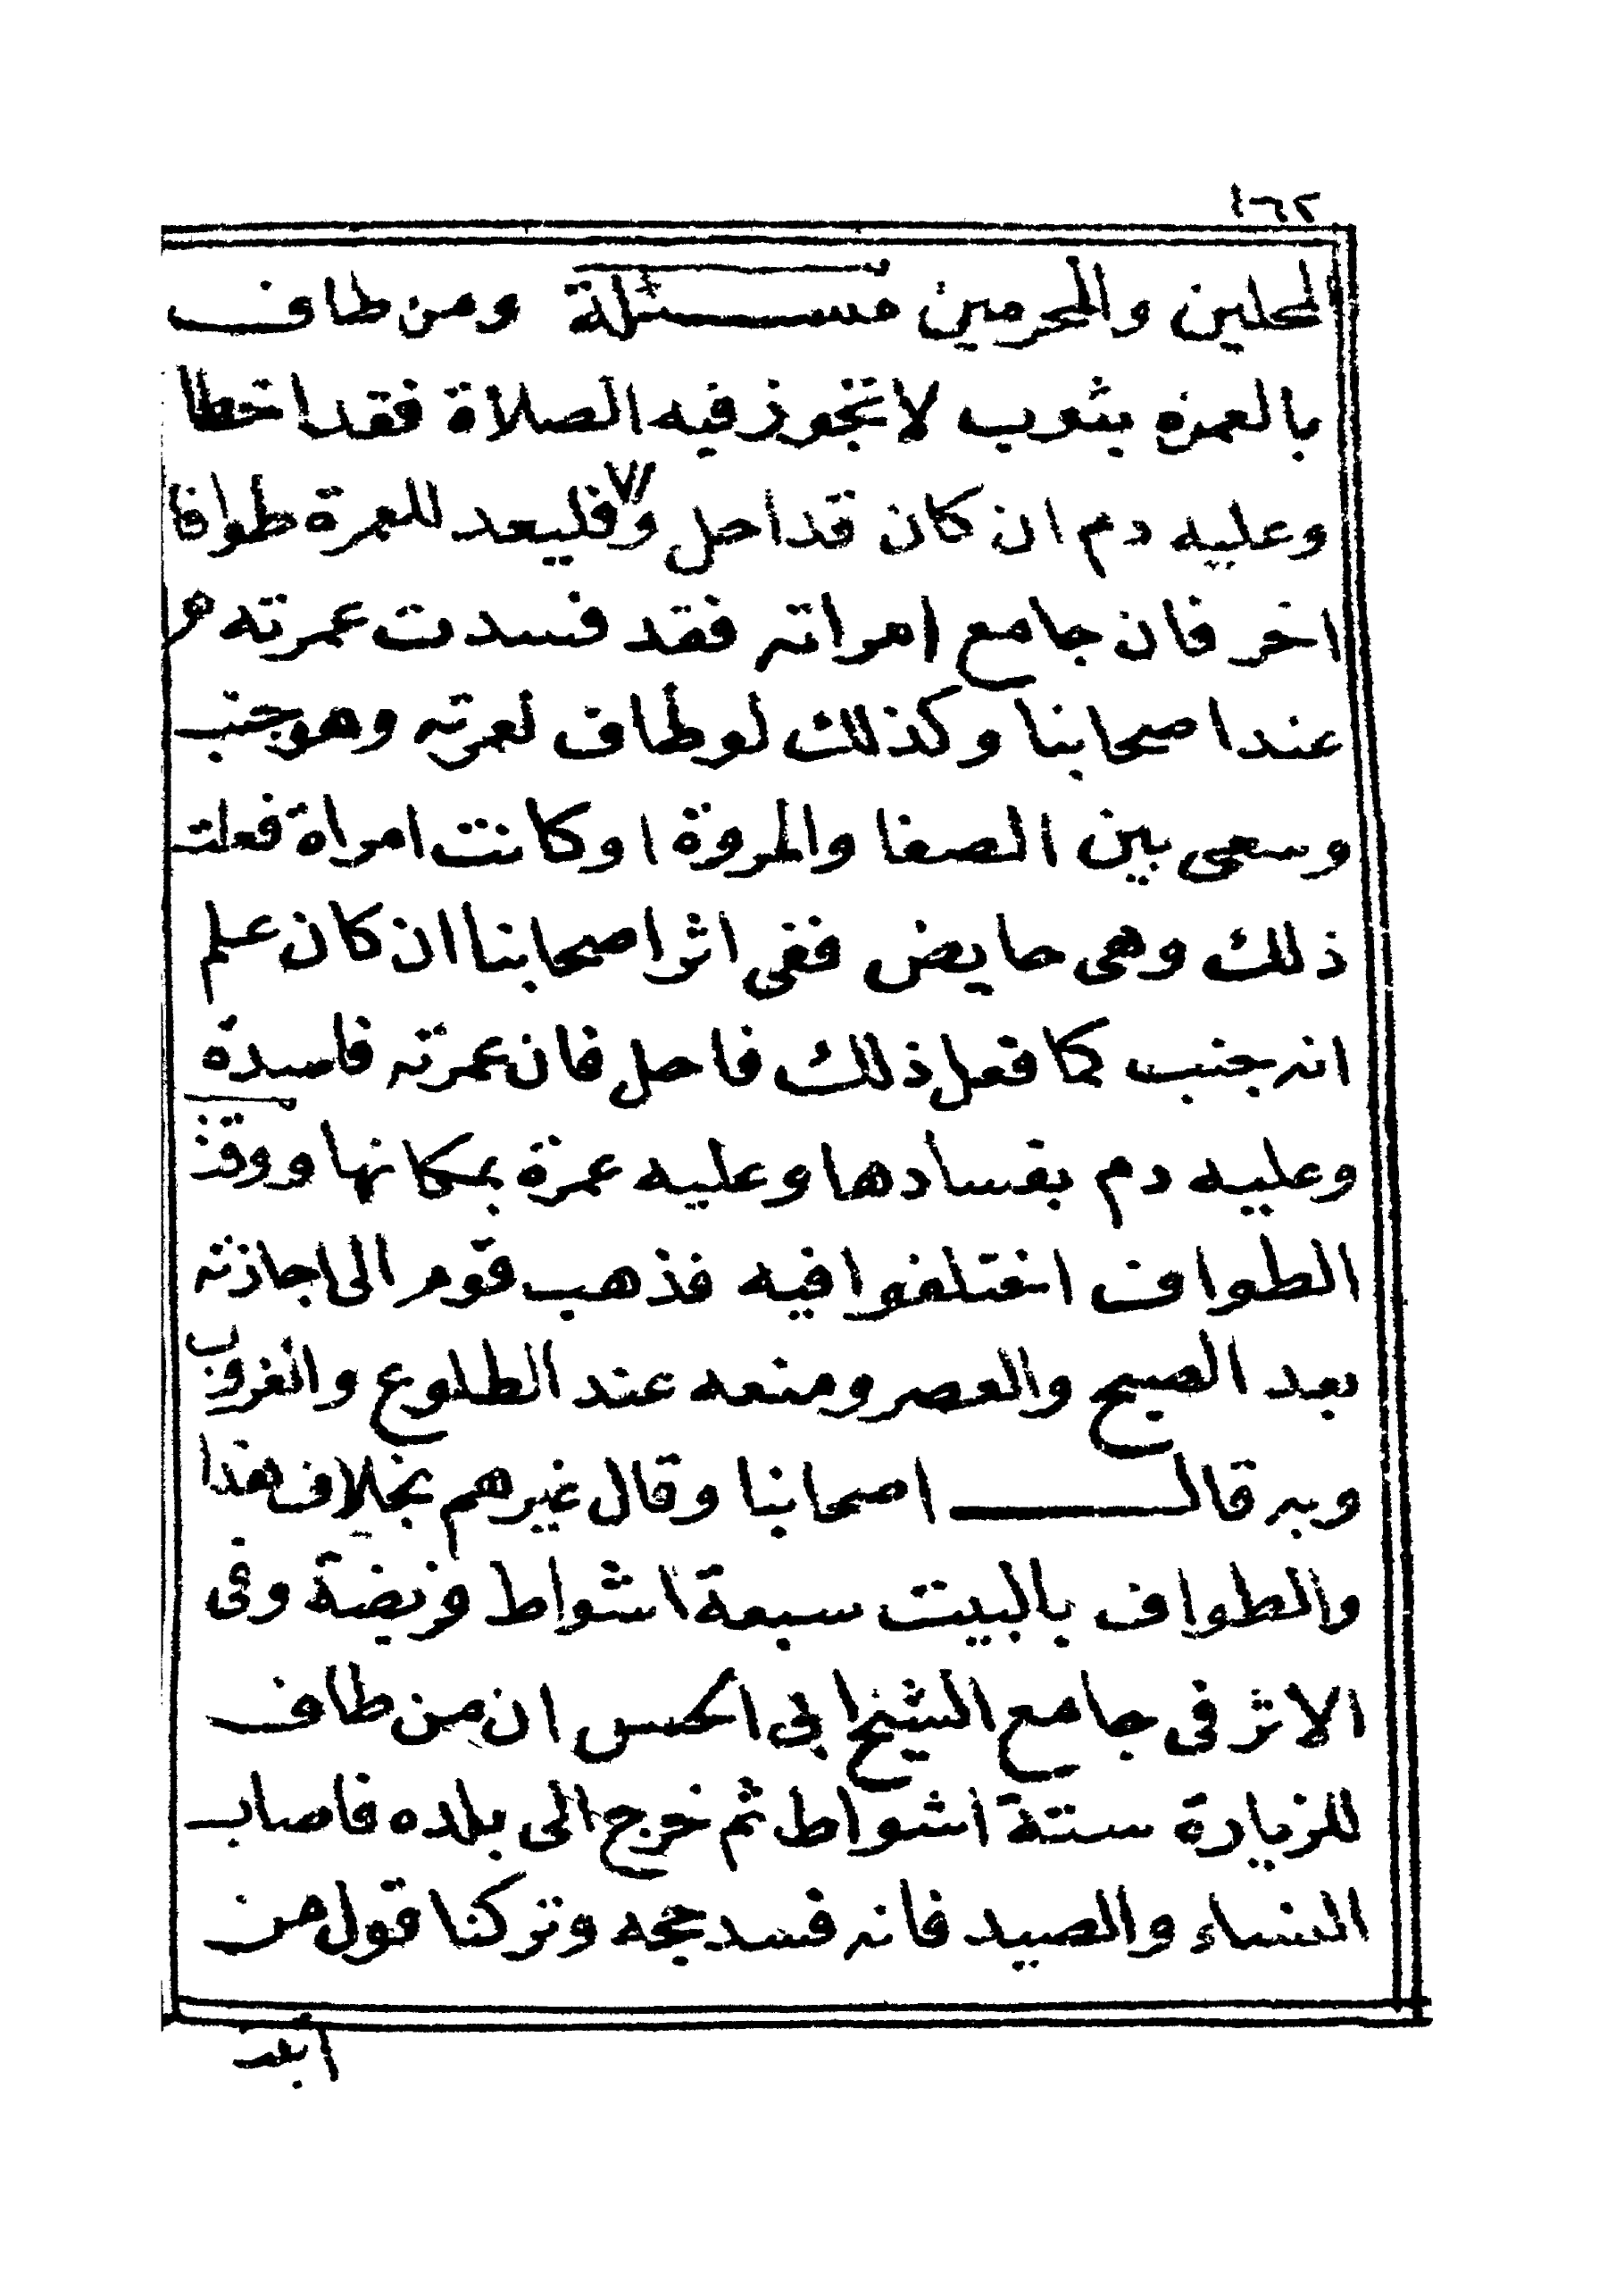 ١٦٢
المحلين والمحرمين مسئلة ومن طاف
بالعمرة بثوب لا تجوز فيه الصلاة فقد اخطا
وعليه دم ان كان قد احل والا فليعد للعمرة طوافا
اخر فان جامع امراته فقد فسدت عمرته
عند اصحابنا وكذلك لو طاف لعمرته وهو جنب
وسعى بين الصفا والمروة او كانت امراة فعلت
ذلك وهى حايض ففى اثر اصحابنا ان كان علم
انه جنب كما فعل ذلك فاحل فان عمرته فاسدة
وعليه دم بفسادها وعليه عمرة بمكانها ووقت
الطواف اختلفوا فيه فذهب قوم الى اجازته
بعد الصبح والعصر ومنعه عند الطلوع والغروب
وبه قال اصحابنا وقال غيرهم بخلاف هذا
والطواف بالبيت سبعة اشواط فريضة وفى
الاثر فى جامع الشيخ ابى الحسن ان من طاف
للزيارة ستة اشواط ثم خرج الى بلده فاصاب
النساء والصيد فانه فسد حجه وتركنا قول من